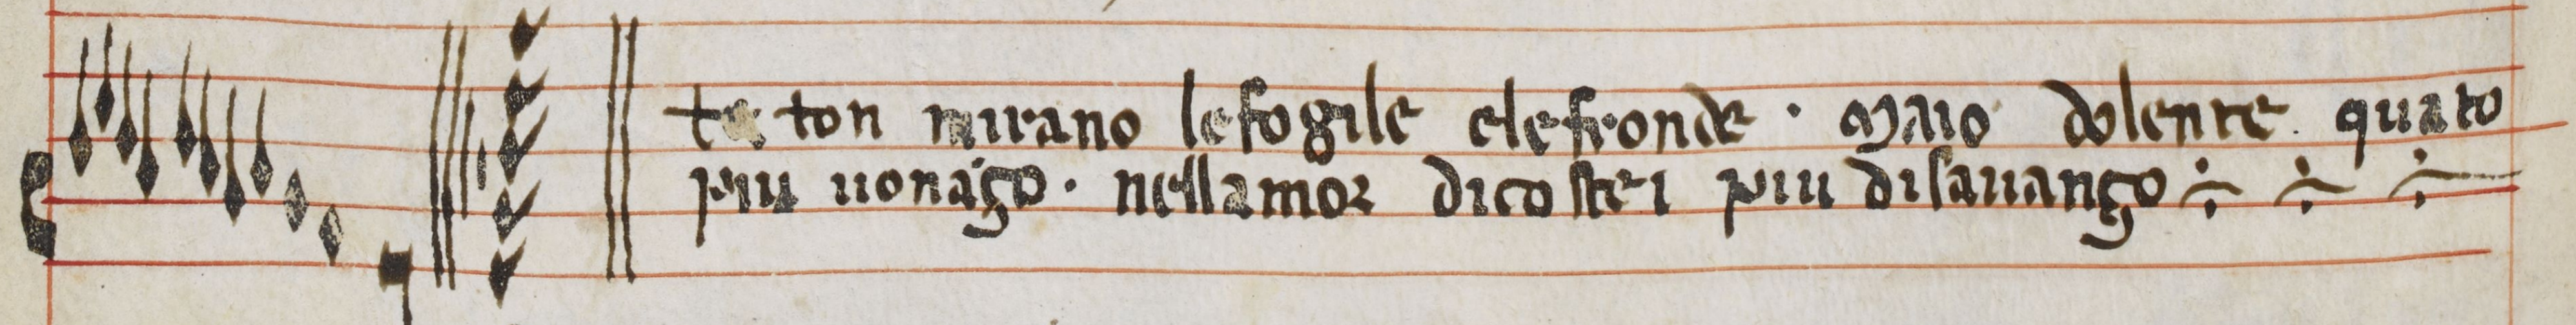 ton mirano lefogile elefronde · Maio dolente quato
piu uonago · nellamor dicostei piu disauango